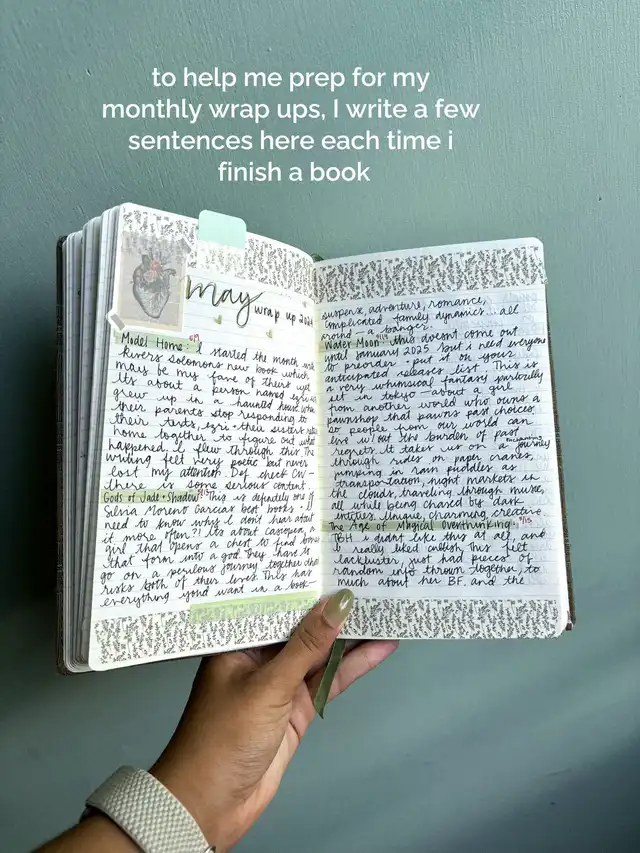 to help me prep for my
monthly wrap ups, I write a few
sentences here each time i
finish a book
may wrap up 2024
Model Home: I started the month with
Rivers Solomons new book which
may be my fave of theirs yet
Its about a person named ezri who
grew up in a haunted house. When
their parents stop responding to
their texts, ezri + their sisters
home together to figure out what
happened. I flew through this. The
writing felt very poetic but never
lost my attention. Def check CW-
there is some serious content.
Gods of Jade + Shadow: This is definitely one of
Silvia Moreno Garcias best books. I
need to know why I dont hear about
it more often?! Its about Casiopea, a
girl that opens a chest to find bones
that form into a god. They have to
go on a perilous journey together that
risks both of their lives. This has
everything youd want in a book-
suspense, adventure, romance,
complicated family dynamics... all
around - a banger.
Water Moon: this doesnt come out
until January 2025 but i need everyone
to preorder + put it on your
anticipated releases list. This is
a very whimsical fantasy partially
set in tokyo - about a girl
from another world who owns a
pawnshop that pawns past choices
so people from our world can
live w/out the burden of past
regrets. It takes us on a enchanting journey
through rides on paper cranes,
jumping in rain puddles as
transportation, night markets in
the clouds, traveling through music,
all while being chased by dark
entities. Unique, charming, creative
The Age of Magical Overthinking: 5/15
TBH I didnt like this at all, and
I really liked cultish. This felt
lackluster, just had pieces of
random info thrown together, to
much about her BF. and the